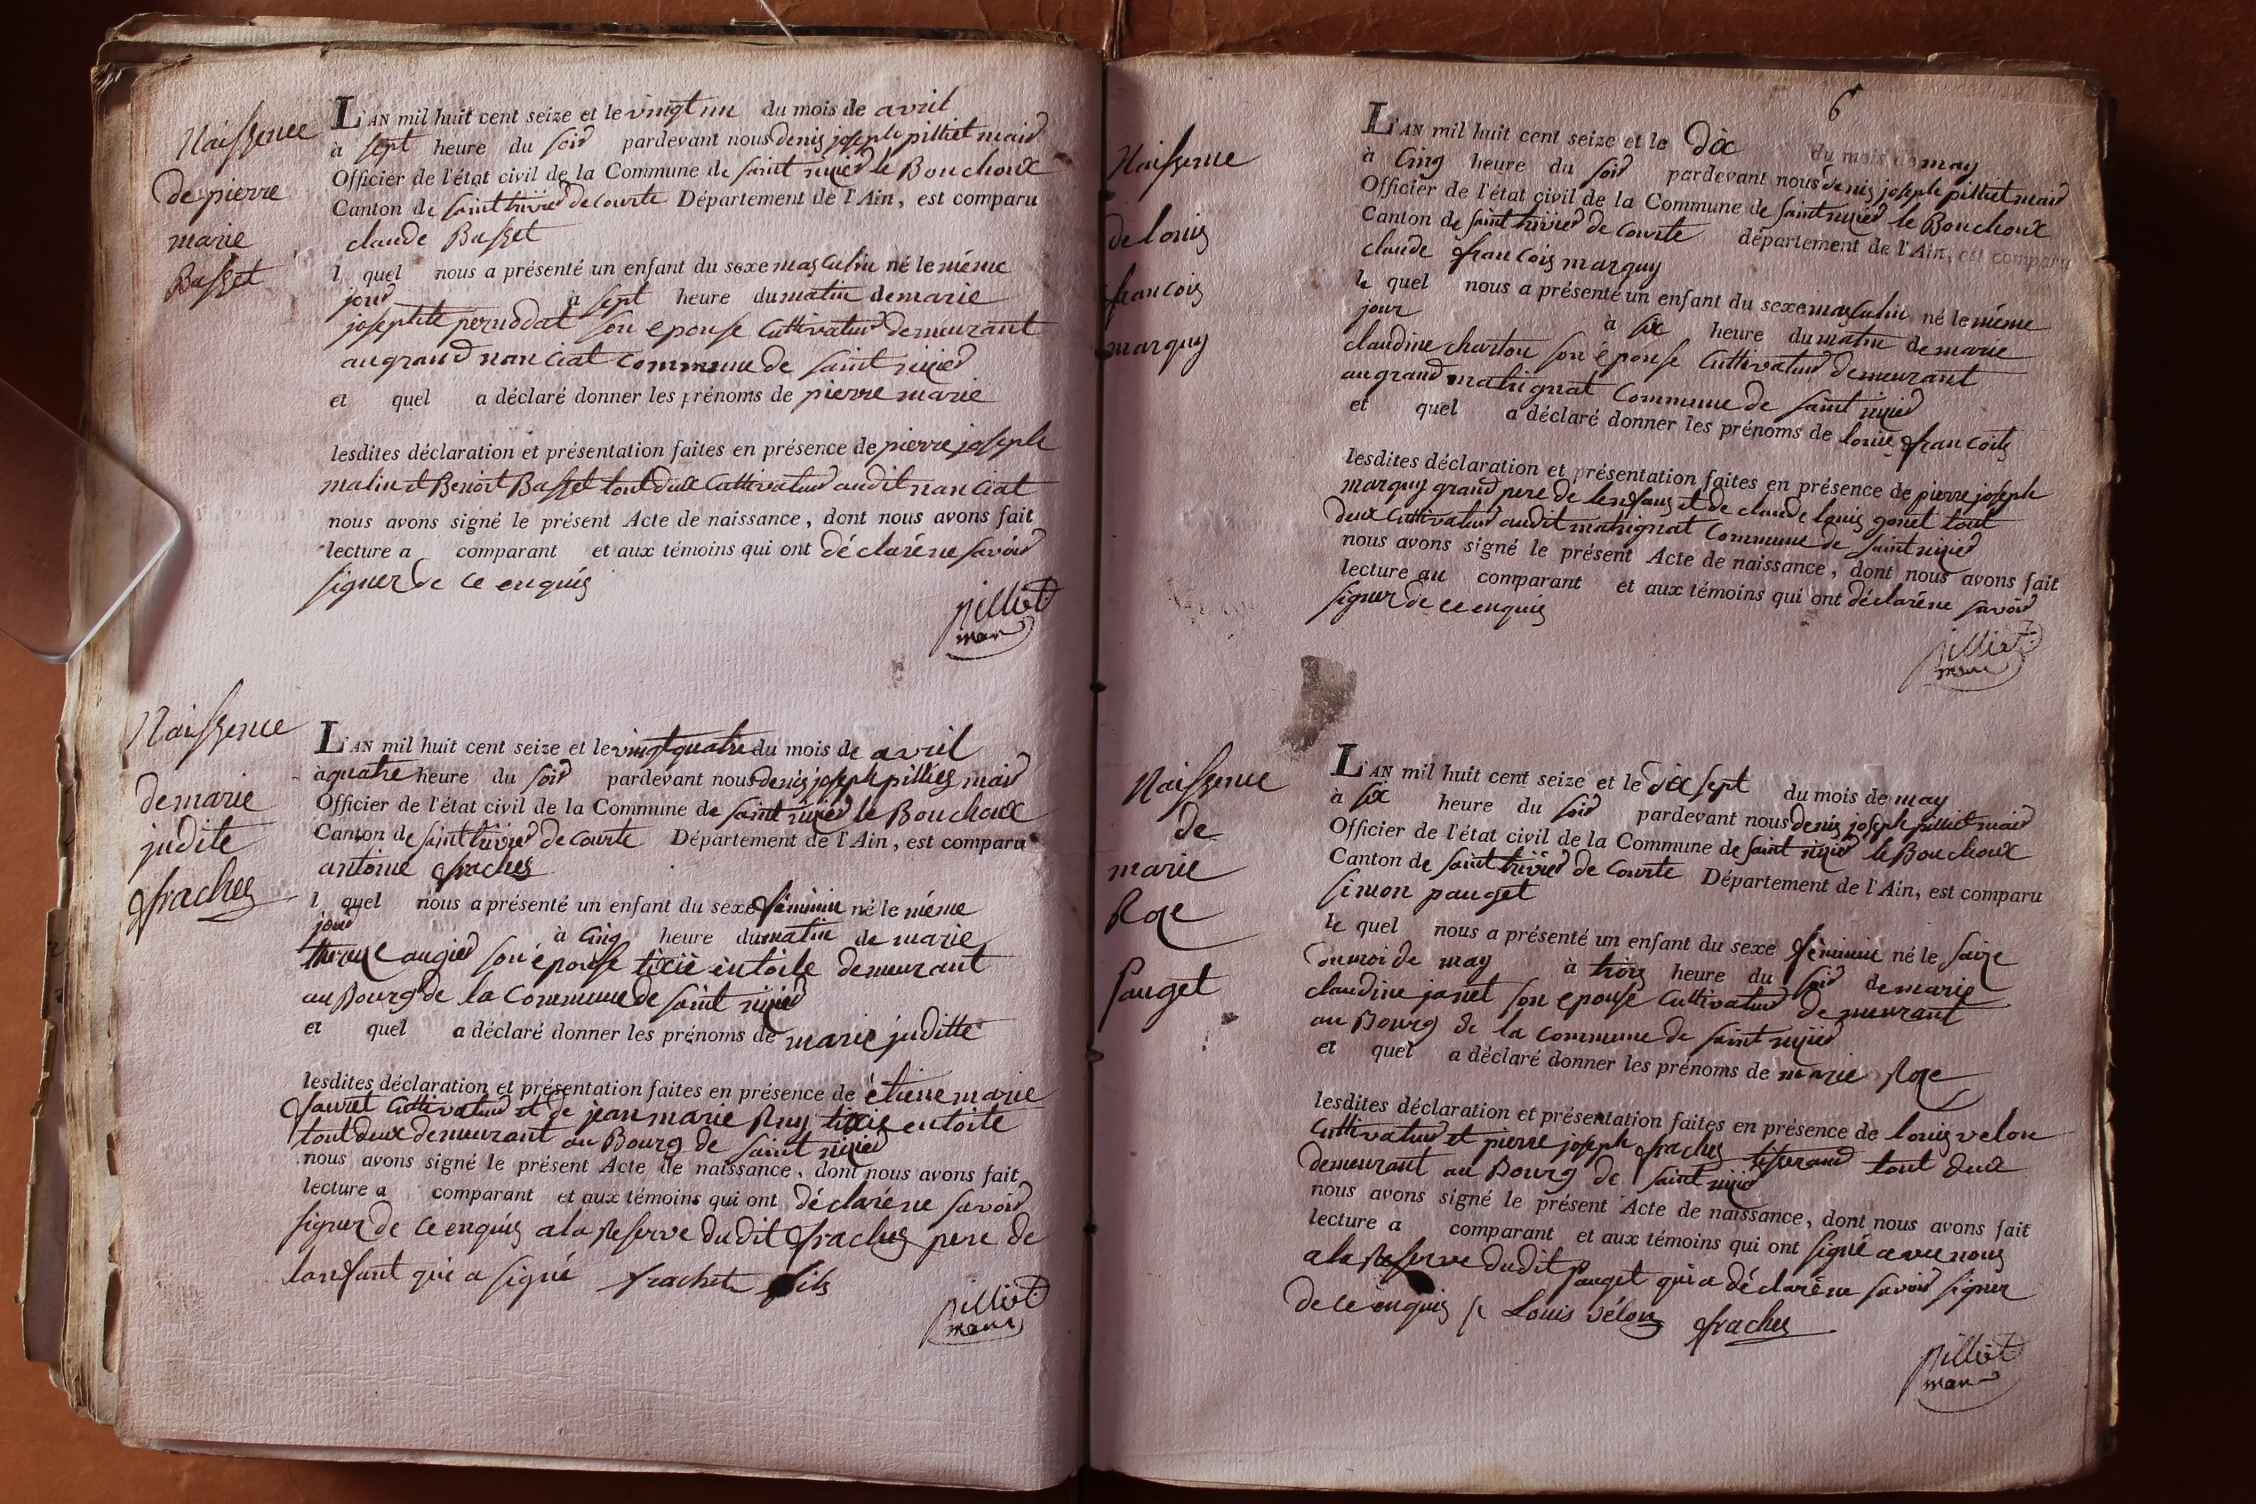 Naissence
de pierre
marie
Basset
L'AN mil huit cent seize et le vingt un du mois de avril
à sept heure du soir pardevant nous denis joseph pilliet maire
Officier de l'état civil de la Commune de saint nizier le Bouchoux
Canton de saint trivier de courte Département de l'Ain, est comparu
claude Basset
l quel nous a présenté un enfant du sexe masculin né le méme
jour à sept heure du matin de marie
josephte pernodat son epouse Cultivateur demeurant
au grand nanciat commune de saint nizier
et quel a déclaré donner les prénoms de pierre marie
lesdites déclaration et présentation faites en présence de pierre joseph
malin et Benoit Basset tout deux Cultivateur audit nanciat
nous avons signé le présent Acte de naissance, dont nous avons fait
lecture a comparant et aux témoins qui ont déclaré ne savoir
signer de ce enquis
pilliet
maire
Naissence
de marie
judite
frachez
L'AN mil huit cent seize et le vingt quatre du mois de avril
à quatre heure du soir pardevant nous denis joseph pilliés maire
Officier de l'état civil de la Commune de saint nizier le Bouchoux
Canton de saint trivier de courte Département de l'Ain, est comparu
antoine frachez
l quel nous a présenté un enfant du sexe féminin né le méme
jour à cinq heure du matin de marie
augier son épouse tixié en toile demeurant
au Bourg de la Commune de saint nizier
et quel a déclaré donner les prénoms de marie juditte
lesdites déclaration et présentation faites en présence de étiene marie
Cultivateur et de jean marie Ruy tixié en toile
tout deux demeurant au Bourg de saint nizier
nous avons signé le présent Acte de naissance, dont nous avons fait
lecture a comparant et aux témoins qui ont déclaré ne savoir
signer de ce enquis a la Reserve du dit frachez pere de
lanfant qui a signé frachet fils
pilliet
maire
6
Naissence
de louis
francois
marquy
L'AN mil huit cent seize et le dix du mois de may
à Cinq heure du soir pardevant nous denis joseph pilliet maire
Officier de l'état civil de la Commune de saint nizier le Bouchoux
Canton de saint trivier de courte département de l'Ain, est comparu
claude francois marquy
le quel nous a présenté un enfant du sexe masculin né le méme
jour à six heure du matin de marie
claudine charton son épouse Cultivateur demeurant
au grand matrignat Commune de saint nizier
et quel a déclaré donner les prénoms de louis francois
lesdites déclaration et présentation faites en présence de pierre joseph
marquy grand pere de lenfans et de claude louis gonet tout
deux Cultivateur audit matrignat Commune de saint nizier
nous avons signé le présent Acte de naissance, dont nous avons fait
lecture au comparant et aux témoins qui ont déclaré ne savoir
signer de ce enquis
pilliet
maire
Naissence
de
marie
Roze
Pauget
L'AN mil huit cent seize et le dix sept du mois de may
à six heure du soir pardevant nous denis joseph pilliet maire
Officier de l'état civil de la Commune de saint nizier le Bouchoux
Canton de saint trivier de courte Département de l'Ain, est comparu
simon pauget
le quel nous a présenté un enfant du sexe féminin né le saize
du moi de may à trois heure du soir de marie
claudine janet son epouse Cultivateur demeurant
au Bourg de la commune de saint nizier
et quel a déclaré donner les prénoms de marie Roze
lesdites déclaration et présentation faites en présence de louis velon
Cultivateur et pierre joseph frachez tisserand tout deux
demeurant au Bourg de saint nizier
nous avons signé le présent Acte de naissance, dont nous avons fait
lecture a comparant et aux témoins qui ont signé avec nous
a la Reserve dudit Pauget qui a déclaré ne savoir signer
de ce enquis Louis vélon frachez
pilliet
maire